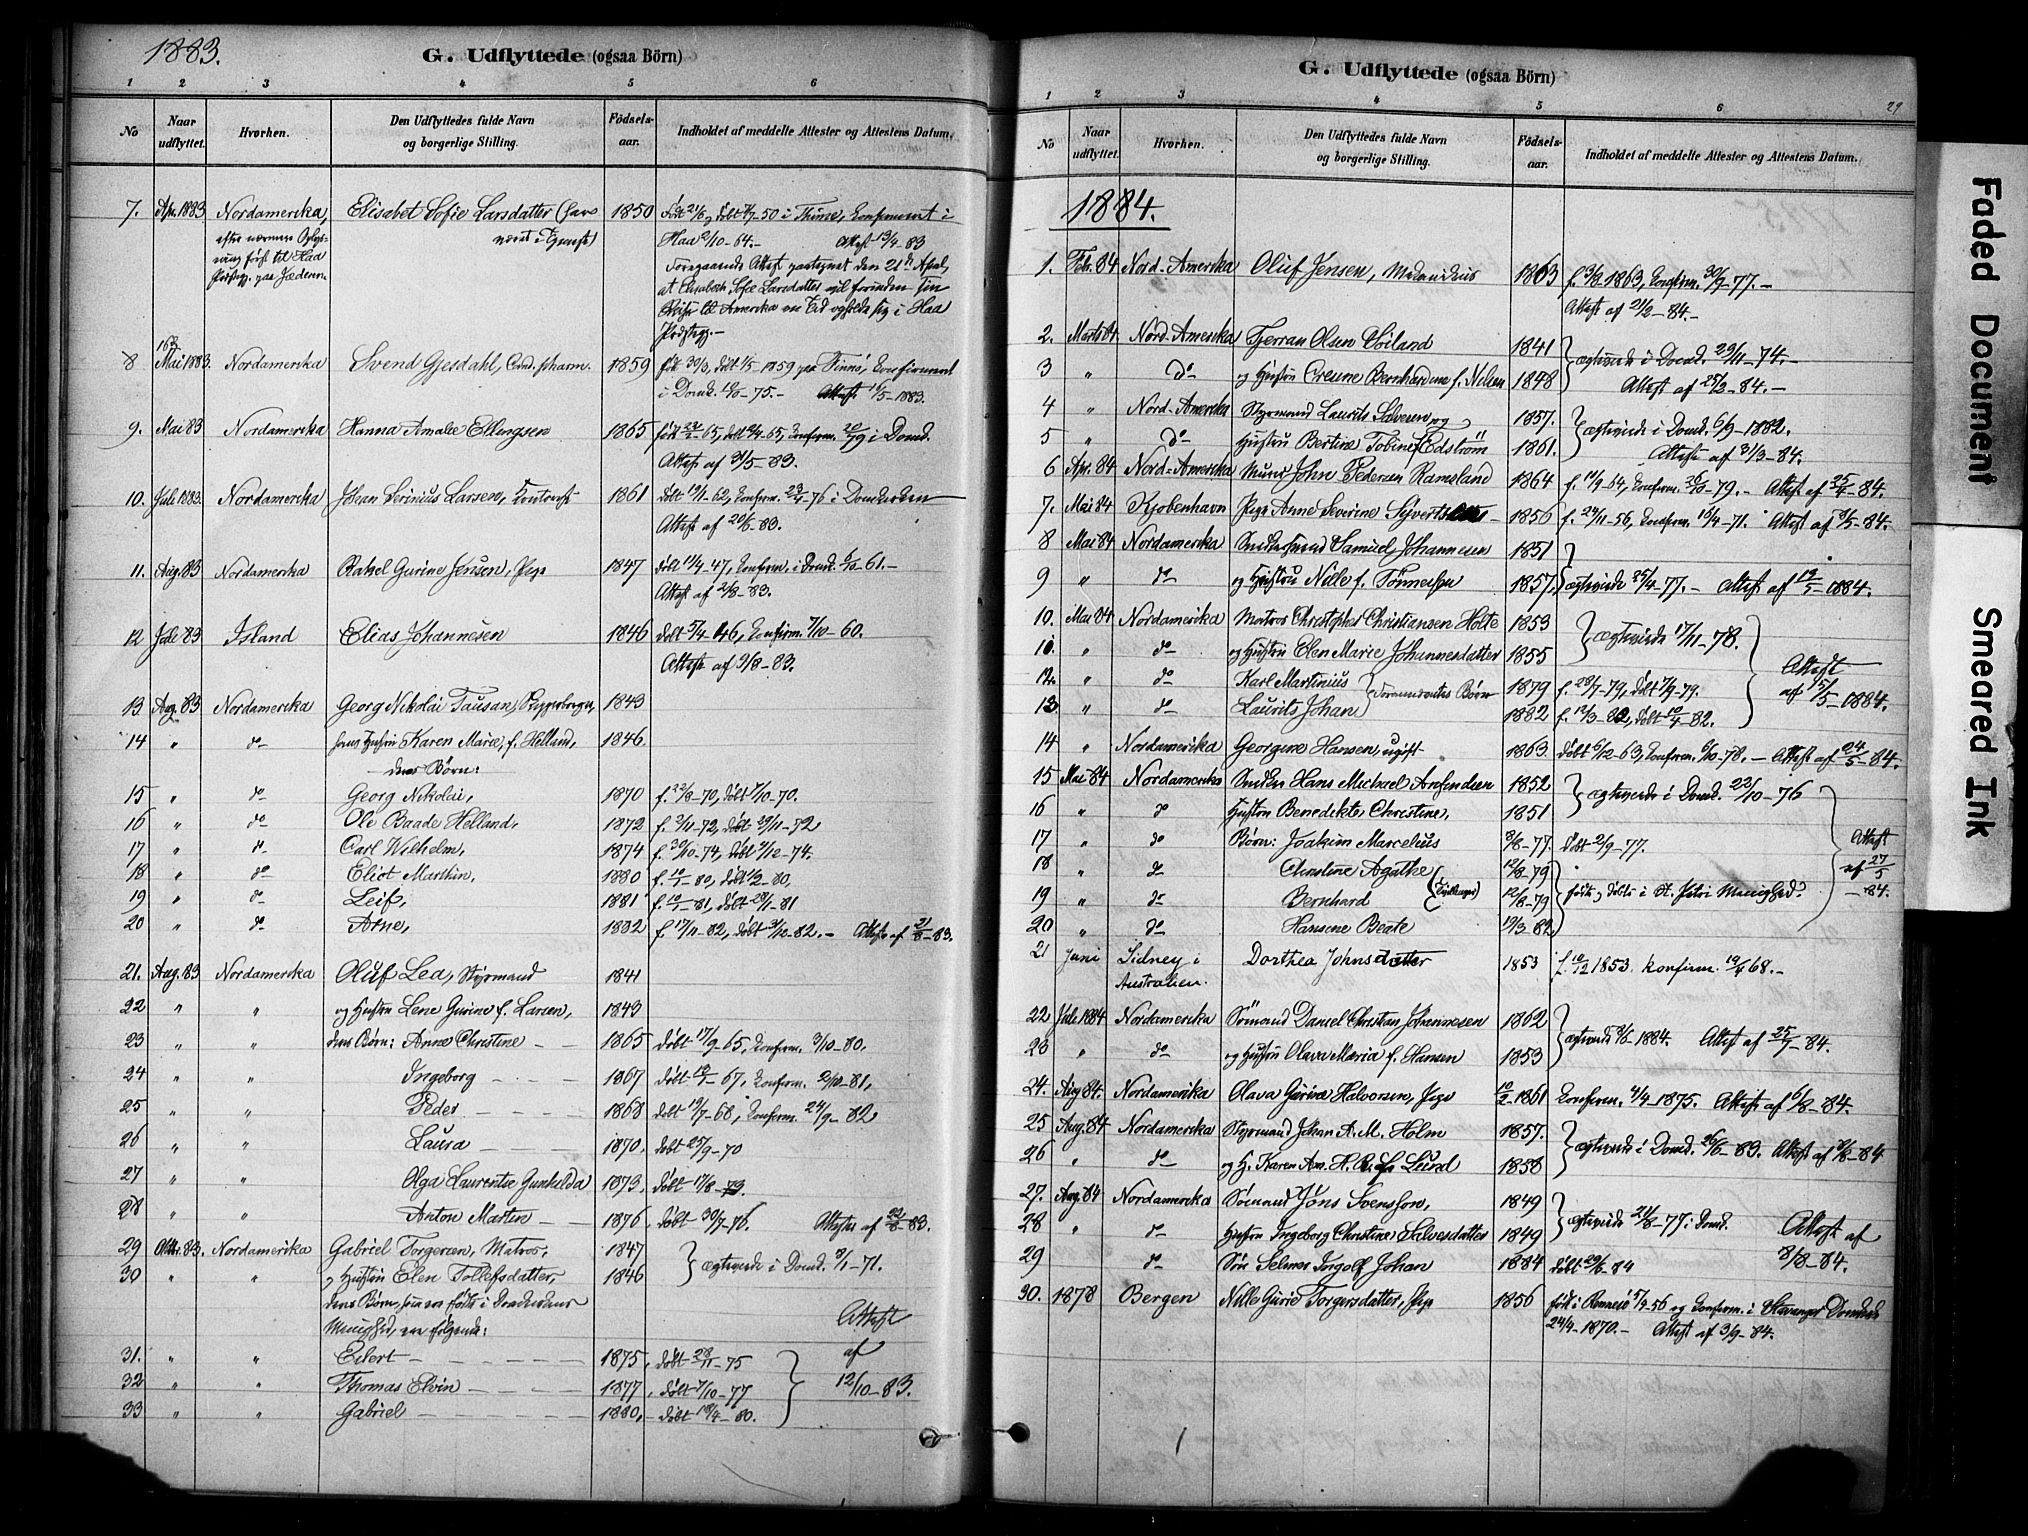 1883.
G. Udflyttede (ogsaa Börn)
1 2 3 4 5 6
No
Naar udflyttet.
Hvorhen.
Den Udflyttedes fulde Navn og borgerlige Stilling.
Födsels-aar.
Indholdet af meddelte Attester og Attestens Datum.
7. Apr. 1883 Nordamerika, Elisabet Sofie Larsdatter (har 1850 Født 21/6, døbt 7/7-50 i Thime, Konfirmeret i
været i Tjeneste) Haa 2/10-64.- Attest 13/4-83
Foregaaende Attest paategnet den 21de April,
at Elisabeth Sofie Larsdatter vil forinden sin
Reise til Amerika en Tid opholde sig i Haa
Præstegj.-
8 Mai 1883. Nordamerika Svend Gjesdahl, Cand. pharm. 1859 født 30/3, døbt 1/5 1859 paa Finnö, Konfirmeret
i Domk. -75.- Attest 1883.
9. Mai 83 Nordamerika Hanna Amalie Ellingsen 1865 født -65, døbt -65, Konfirm. 79 i Domk.
Attest af 31/5-83.
10. Juli 1883. Nordamerika Johan Serinius Larsen, 1861 døbt -62, Konfirm. 23/4-76 i Domkirken
Attest af 20/6-83.
11. Aug. 83 Nordamerika Rakel Gurine Jensen, Pige 1847 døbt 11/4-47, Konfirm. i Domk. 6/10-61.-
Attest af 2/8-83.
12 Juli 83 Island Elias Johannesen 1846 døbt 5/4 46, Konfirm. 7/10-60.
Attest af 3/8-83.
13 Aug 83 Nordamerika Georg Nikolai Tausan, 1843
14 " do hans Hustru Karen Marie, f. Helland, 1846.
deres Børn:
15 " do Georg Nikolai, 1870 f. 22/8-70, døbt 7/10-70.
16 " do Ole Baade Helland, 1872 f. 3/11-72, døbt 29/11-72
17 " do Carl Wilhelm, 1874 f. 30/10-74, døbt 4/12-74.
18 " do Eliot Marthin, 1880 f. -80, døbt 1/2-80,
19 " do Leif, 1881 f. -81, døbt -81
20 " do Arne, 1882 f. -82, døbt 3/10-82.- Attest af 21/8-83.
21. Aug. 83 Nordamerika Oluf Lea, Styrmand 1841
22 " " og Hustru Lene Gurine f. Larsen, 1843
23 " " deres Børn: Anne Christine 1865 døbt 17/9-65, Konfirm. 3/10-80.
24 " " Ingeborg 1867 døbt -67, Konfirm. 2/10-81,
25 " " Peder 1868 døbt 19/7-68, Konfirm. 24/9-82
26 " " Laura 1870, døbt 25/9-70
27 " " Olga Laurentse Gunhilda 1873, døbt 17/8-73.
28 " " Anton Martin 1876, døbt 30/7-76. Attester af 22/8-83.
29 Oktr. 83. Nordamerika Gabriel Torgersen, Matros, 1847
30 " " og Hustru Elen Tollefsdatter, 1846 ægteviede i Domk. 8/1-71.
deres Børn, som ere fødte i Domkirkens
Menighed, ere følgende: Attest
31. " " Eilert 1875, døbt 28/11-75 af
32 " " Thomas Elvin 1877, døbt 7/10-77 12/10-83.
33 " " Gabriel 1880, døbt 18/4-80.
G. Udflyttede (ogsaa Börn)
1 2 3 4 5 6 29
No
Naar udflyttet.
Hvorhen.
Den Udflyttedes fulde Navn og borgerlige Stilling.
Födsels-aar.
Indholdet af meddelte Attester og Attestens Datum.
1884.
1. Febr. 84 Nord-Amerika Oluf Jensen, Mekanikus 1863 f. 3/8-1863, Konfirm. 30/9-77.-
Attest af 21/2-84.-
2. Marts 84 Nord-Amerika Tjerran Olsen Voiland 1841
3 " do og Hustru Cresine Bernhardine f. Nilsen 1848 ægteviede i Domk. 29/11-74.- Attest af 25/3-84.-
4 " Nord-Amerika Styrmand Laurits Salvesen og 1857.
5 " do Hustru Bertine Tobine f Edström 1861. ægteviede i Domk. 6/9-1882. Attest af 31/3-84.
6 Apr. 84 Nord-Amerika Murer John Pedersen Ramsland 1864 f. 11/9-64, Konfirm. -79.- Attest af 25/4-84.
7. Mai 84 Kjøbenhavn Pige Anne Severine Sivertsen 1856 f. 24/11-56, Konfirm. 16/4-71. Attest af 3/5-84.
8 Mai 84 Nordamerika Samuel Johannesen 1851
9 " do og Hustru Nille f. Tønnesen 1857. ægteviede 25/4-77.- Attest af 12/5-1884.
10. Mai 84 Nordamerika Matros Christopher Christiansen Holte 1853
10. " do og Hustru Elen Marie Johannesdatter 1855 ægteviede 17/11-78.
12. " do Karl Martinius 1879 f. 28/7-79, døbt 7/9-79. Attest
13. " do Laurits Johan Foranstaaendes Børn 1882 f. 12/3-82, døbt -82. af 15/5-1884.
14 " Nordamerika Georgine Hansen, ugift 1863. døbt 6/12-63, Konfirm. 6/10-78.- Attest af 24/5-84.
15 Mai 84 Nordamerika Snedker Hans Michael Amundsen 1852
16 " do Hustru Benedikte Christine, 1851 ægteviede i Domk. 22/10-76
17 " do Børn: Joakim Marcelius 3/8-77. døbt 2/9-77. Attest
18 " do Christine Agathe (Tvillinger) 12/8-79 af 27/5
19 " do Bernhard 12/8-79 fødte og døbte i St. Petri Menighed. -84.
20 " do Hansine Beate 19/3-82
21 Juni Sidney i Dorthea Johnsdatter 1853 f. 10/12 1853. konfirm. 19/4 68.-
Australien.
22 Juli 1884 Nordamerika Sømand Daniel Christian Johannesen 1862
23 " do og Hustru Olava Maria f. Hansen 1853 ægteviede 1884. Attest af 25/7-84.
24. Aug 84. Nordamerika Olava Gurine Halvorsen, Pige 10/2-1861 Konfirm. 4/4-1875. Attest af 6/8-84.
25 Aug. 84 Nordamerika Styrmand Johan A. M. Holm 1857.
26 " do og H. Karen An. H. R. f. Lund 1858 ægteviede i Domk. 26/6-83. Attest af 7/8-84
27. Aug 84 Nordamerika Sømand Jöns Svensson, 1849
28 " do Hustru Ingeborg Christine Salvesdatter 1849 ægteviede 21/8-77 i Domk. Attest af
29 do Søn Selmer Ingolf Johan 1884 døbt 29/6-84 8/8-84.
30. 1878 Bergen Nille Gurie Torgersdatter, Pige 1856 født i Rennesö 5/4-56 og Konfirm. i Stavanger Domkirke
24/4-1870.- Attest af 3/9-84.
Faded Document
Smeared Ink